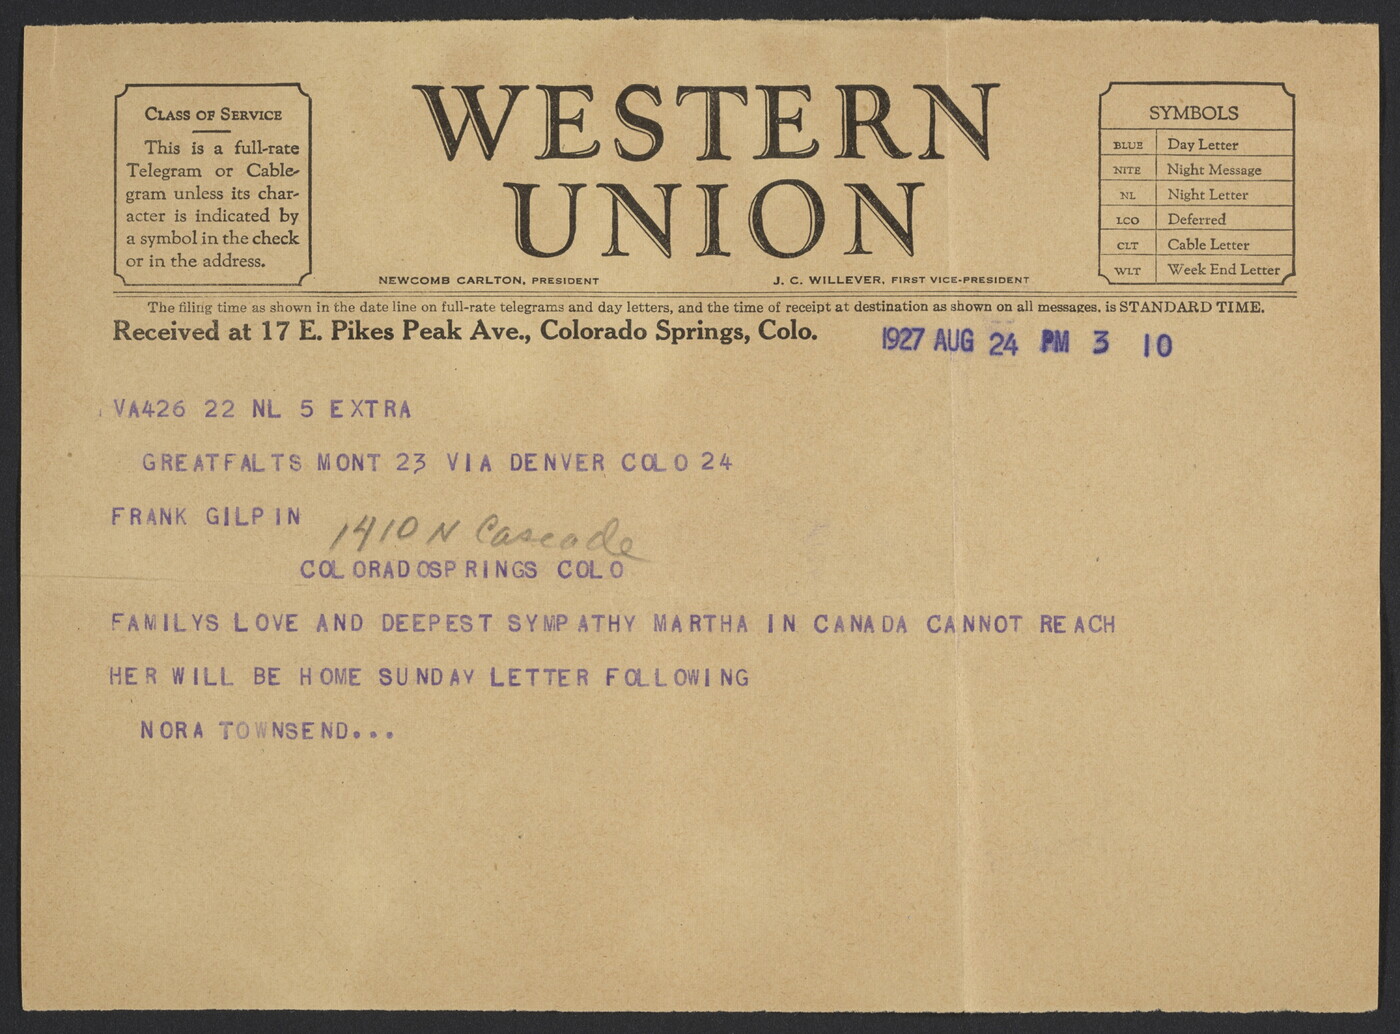 CLASS OF SERVICE
This is a full-rate
Telegram or Cable-
gram unless its char-
acter is indicated by
a symbol in the check
or in the address.
WESTERN
UNION
NEWCOMB CARLTON, PRESIDENT
J. C. WILLEVER, FIRST VICE-PRESIDENT
SYMBOLS
BLUE Day Letter
NITE Night Message
NL Night Letter
LCO Deferred
CLT Cable Letter
WLT Week End Letter
The filing time as shown in the date line on full-rate telegrams and day letters, and the time of receipt at destination as shown on all messages, is STANDARD TIME.
Received at 17 E. Pikes Peak Ave., Colorado Springs, Colo.
1927 AUG 24 PM 3 10
VA426 22 NL 5 EXTRA
GREATFALTS MONT 23 VIA DENVER COLO 24
FRANK GILPIN
1410 N Cascade
COLORADOSPRINGS COLO
FAMILYS LOVE AND DEEPEST SYMPATHY MARTHA IN CANADA CANNOT REACH
HER WILL BE HOME SUNDAY LETTER FOLLOWING
NORA TOWNSEND...